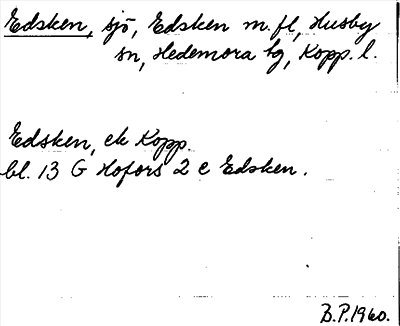 Edsken, sjö, Edsken m. fl, Husby
sn, Hedemora tg, Kopp. l.
Edsken, ek Kopp.
bl. 13 G Hofors 2 c Edsken.
B.P.1960.